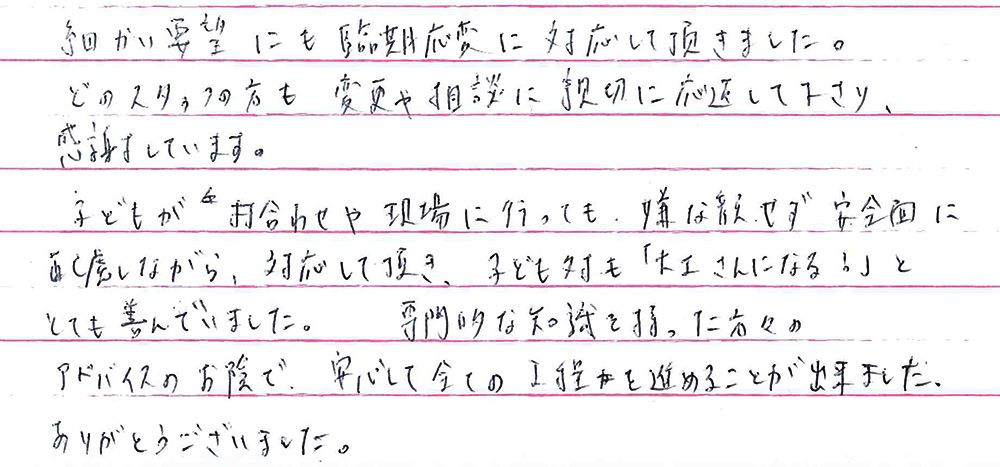 細かい要望にも臨期応変に対応して頂きました。
どのスタッフの方も変更や相談に親切に応返して下さり、
感謝しています。
子どもが打合わせや現場に行っても、嫌な顔せず安全面に
配慮しながら、対応して頂き、子ども対も「大工さんになる!」と
とても喜んでいました。 専門的な知識を持った方々の
アドバイスのお陰で、安心して全ての工程を進めることが出来ました。
ありがとうございました。